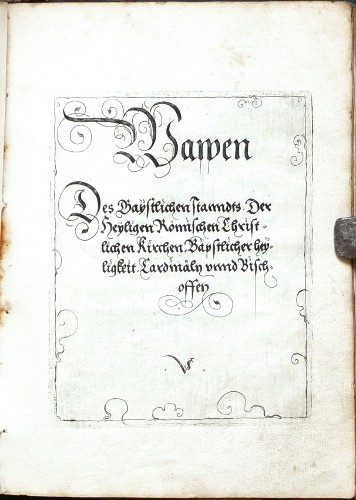 Wapen
Des Gaÿstlichen stanndts. Der
Heÿligen Römischen Christ-
lichen Kirchen, Bäpstlicher heÿ-
ligkeit, Cardinäln vnnd Bisch-
offen